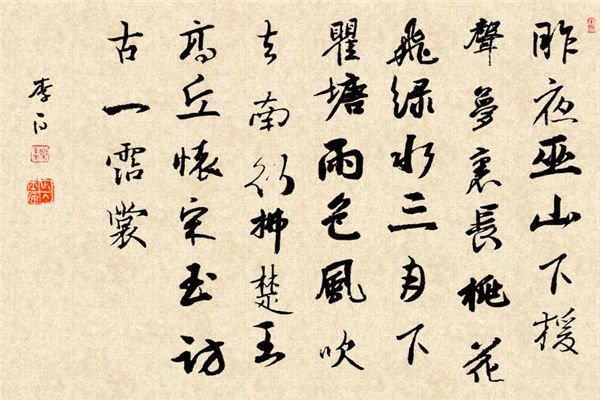 昨夜巫山下猨
聲夢裏長桃花
飛绿水三月下
瞿塘雨色風吹
去南行拂楚王
高丘懷宋玉訪
古一霑裳
李白